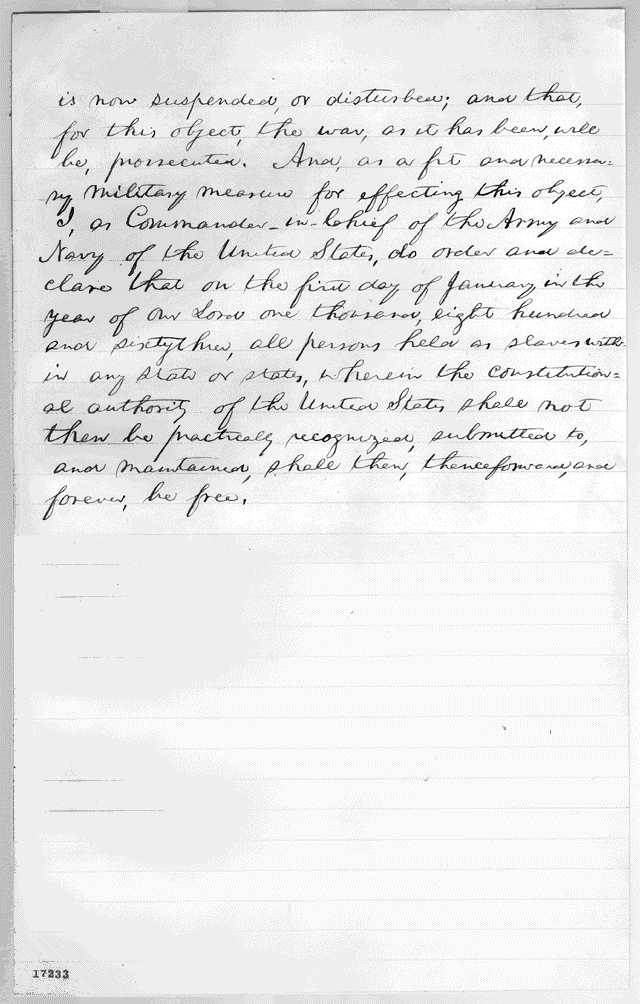 is now suspended, or disturbed; and that,
for this object, the war, as it has been, will
be, prossecuted. And, as a fit and necessa-
ry military measure for effecting this object,
I, as Commander-in-Chief of the Army and
Navy of the United States, do order and de=
clare that on the first day of January in the
year of our Lord one thousand, eight hundred
and sixtythree, all persons held as slaves with-
in any state or states, wherein the constitution=
al authority of the United States shall not
then be practically recognized, submitted to,
and maintained, shall then, thenceforward, and
forever, be free.
17233